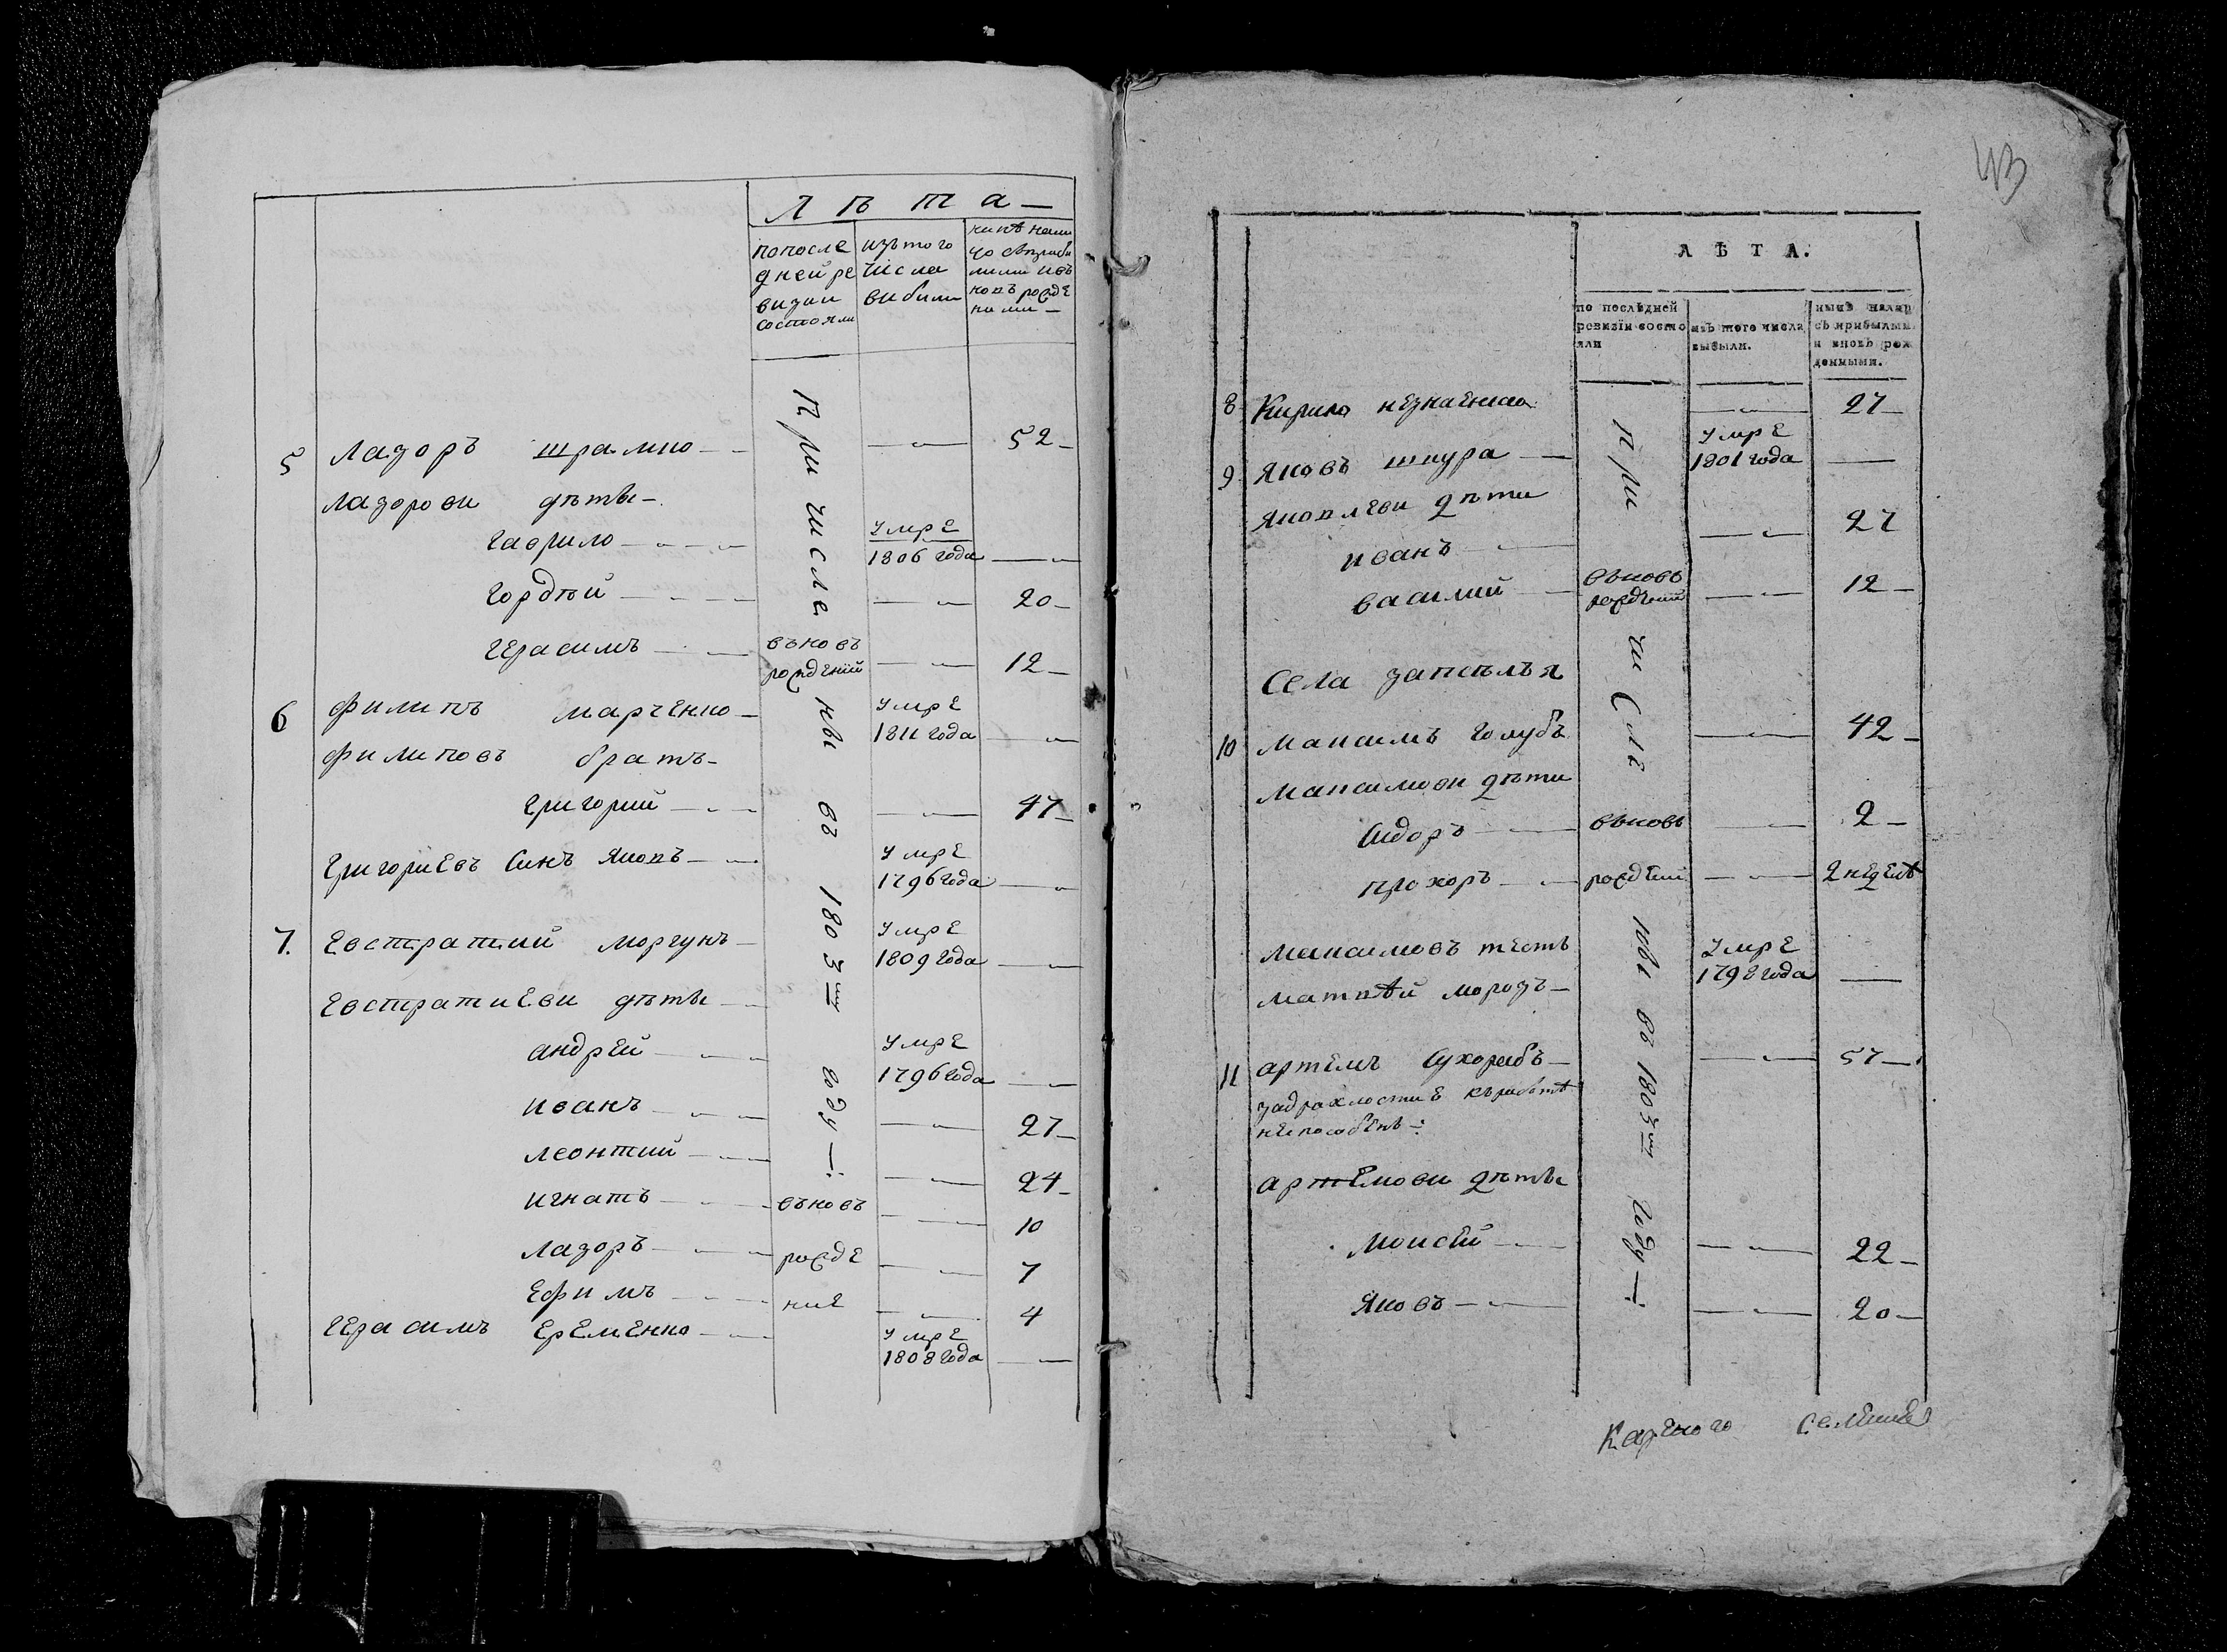 Лѣта —
попосле
дней ре
визии
состояли
изъ того
числа
вибили
нинѣ нали
цо съприби
лими ивъ
новъ рожде
ними —
При числе
5 Лазоръ шрамко — 52 —
Лазорови дѣти —
Гаврило — умре
1806 года —
Гордѣй — 20 —
Герасимъ — въновъ
рожденій — 12 —
6 Филипъ Марченко — умре
1811 года —
Филиповъ братъ —
Григорий — 47 —
Григориевъ синъ Яковъ — умре
1796 года —
7. Евстратий Моргунъ — умре
1809 года —
Евстратиеви дѣти —
Андрей — умре
1796 года —
Иванъ — 27 —
Леонтий — 24 —
Игнатъ — въновъ — 10
Лазоръ — рожде — 7
Ефимъ — ние — 4
Герасимъ Еременко — умре
1808 года —
въ 1803му году —:
43
ЛѢТА.
по послѣдней
ревизіи состо
яли
изъ того числа
выбыли.
нынѣ налиц
съ прибылыми
и вновь рож
денными.
8 Кирило — 27 —
При
9 Яковъ шкура — умре
1801 года —
Яковлеви дѣти
Иванъ — 27
Василий — въновъ
рожденій — 12 —
числе
Села запселья
10 Максимъ Голубъ — 42 —
Максимови дѣти
Сидоръ — въновъ — 2 —
Прохоръ — рождени — 2 неделѣ
Максимовъ тесть
Матвѣй Морозъ — умре
1798 года —
въ 1803му году —:
11 Артемъ Сухоребъ — 57 —
задрахлостие къработѣ
неспособенъ —:
Артемови дѣти
Моисей — 22 —
Яковъ — 20 —